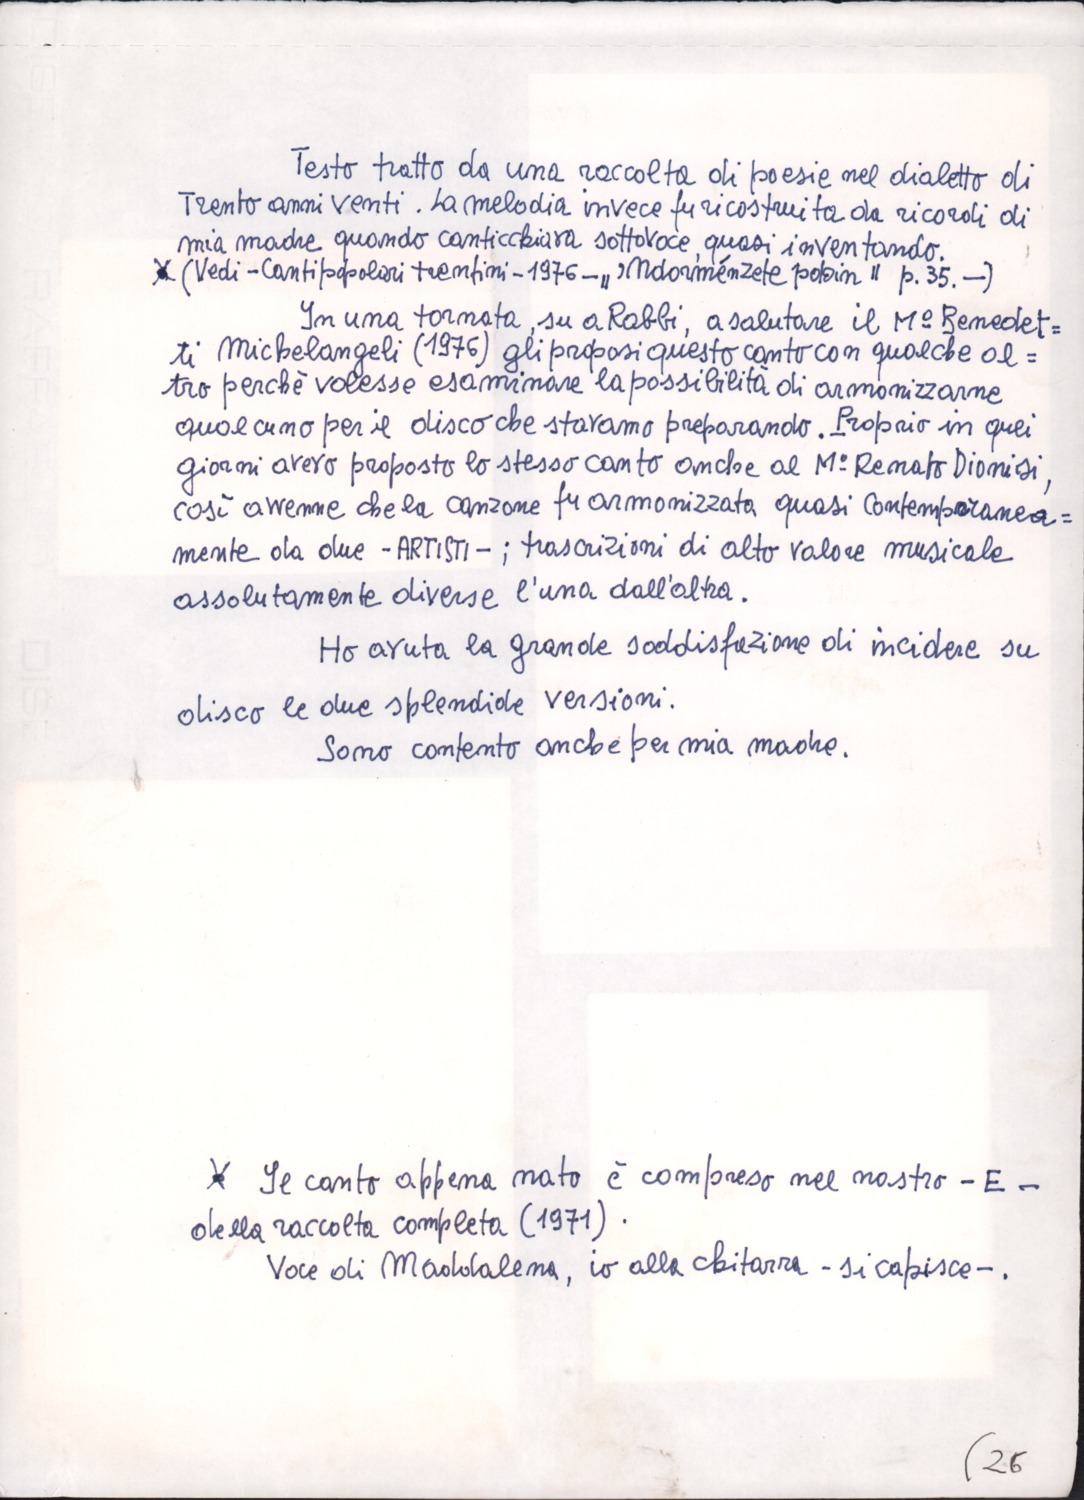 Testo tratto da una raccolta di poesie nel dialetto di
Trento anni venti. La melodia invece fu ricostruita da ricordi di
mia madre quando canticchiava sottovoce, quasi inventando.
(Vedi - Canti popolari trentini - 1976 - „ 'Ndorménzete popin " p. 35. -)
In una tornata, su a Rabbi, a salutare il Mº Benedet=
ti Michelangeli (1976) gli proposi questo canto con qualche al=
tro perchè volesse esaminare la possibilità di armonizzarne
qualcuno per il disco che stavamo preparando. Proprio in quei
giorni avevo proposto lo stesso canto anche al Mº Renato Dionisi,
così avvenne che la canzone fu armonizzata quasi contemporanea=
mente da due - ARTISTI - ; trascrizioni di alto valore musicale
assolutamente diverse l'una dall'altra.
Ho avuta la grande soddisfazione di incidere su
disco le due splendide versioni.
Sono contento anche per mia madre.
Il canto appena nato è compreso nel nostro - E -
della raccolta completa (1971).
Voce di Maddalena, io alla chitarra - si capisce -.
(26